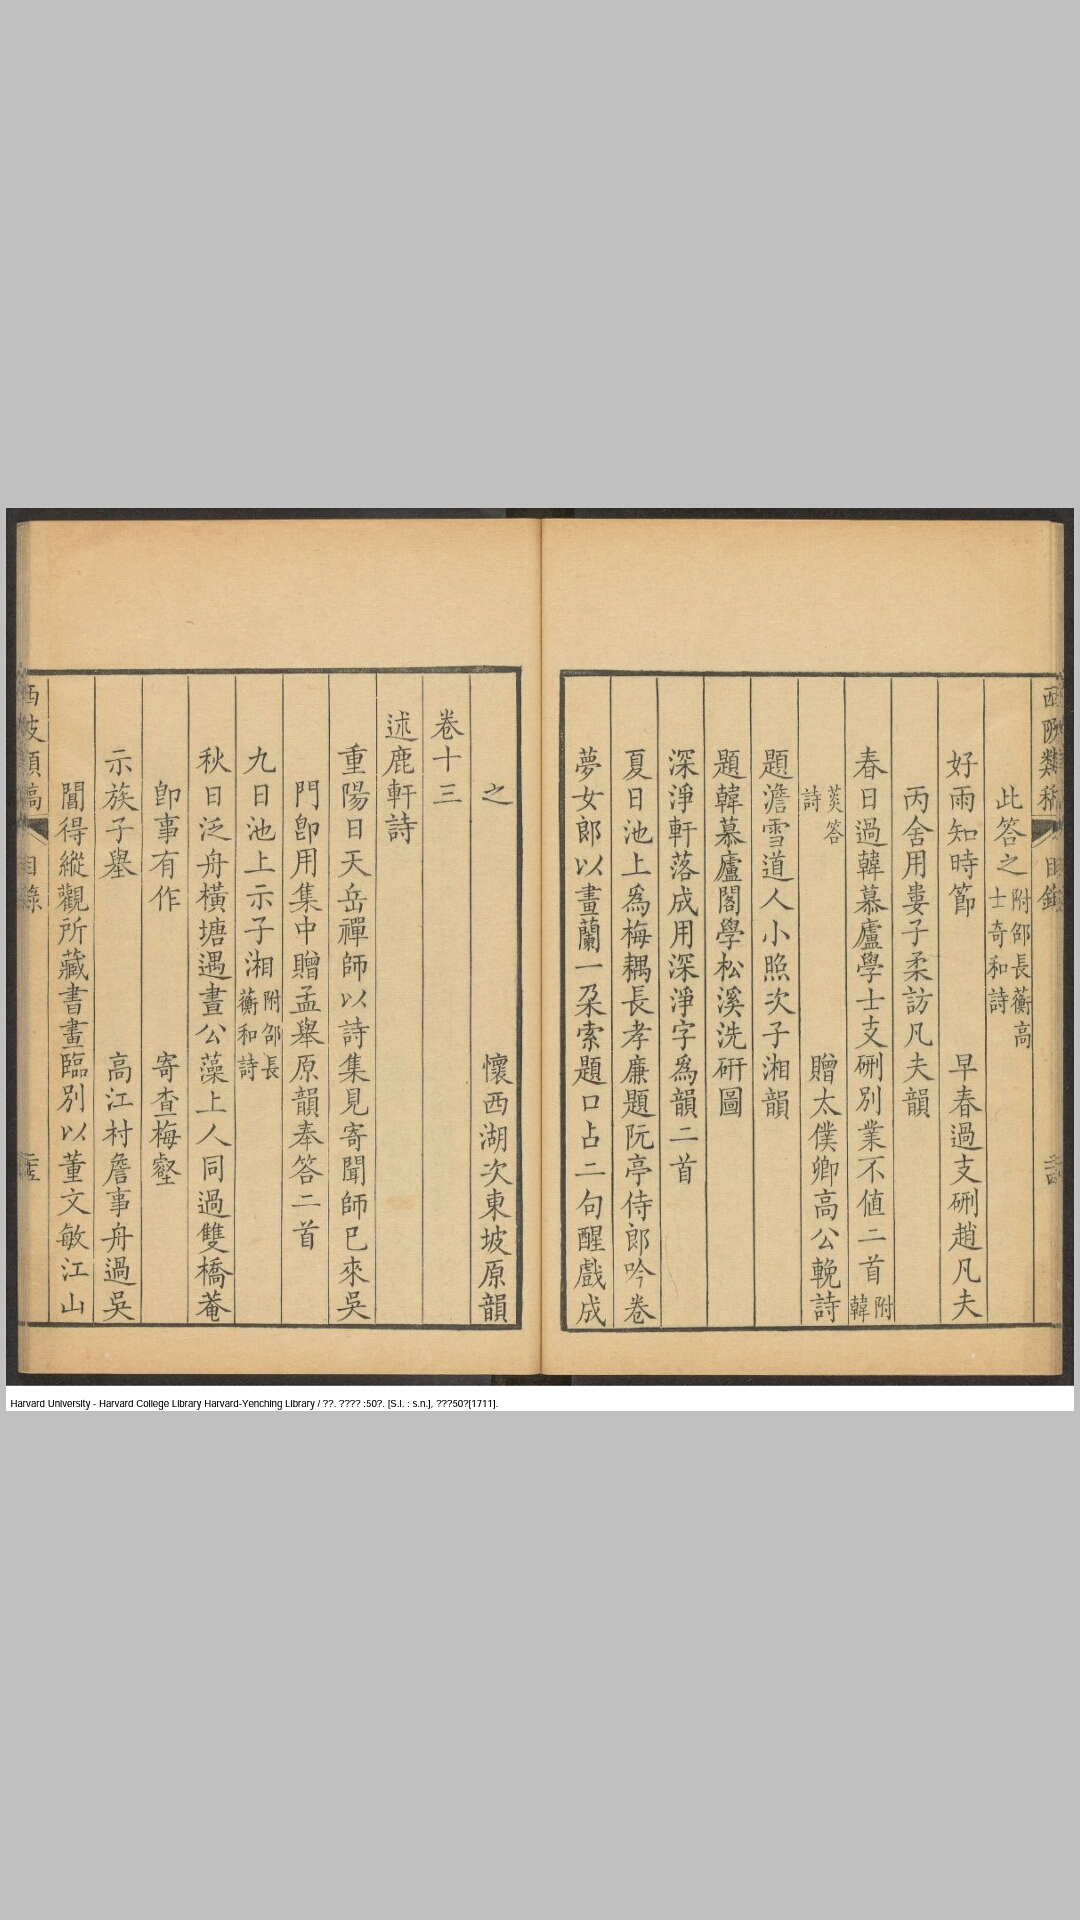 此答之附邵長蘅高士奇和詩
好雨知時節 早春過支硎趙凡夫
丙舍用婁子柔訪凡夫韻
春日過韓慕廬學士支硎別業不値二首附韓
菼答詩 贈太僕卿高公輓詩
題澹雪道人小照次子湘韻
題韓慕廬閣學松溪洗硏圖
深淨軒落成用深淨字爲韻二首
夏日池上爲梅耦長孝廉題阮亭侍郎吟卷
夢女郎以畫蘭一朶索題口占二句醒戲成
之 懷西湖次東坡原韻
卷十三
述鹿軒詩
重陽日天岳禪師以詩集見寄聞師已來吳
門卽用集中贈孟舉原韻奉答二首
九日池上示子湘附邵長蘅和詩
秋日泛舟橫塘遇畫公藻上人同過雙橋菴
卽事有作 寄查梅壑
示族子舉 高江村詹事舟過吳
閶得縱觀所藏書畫臨別以董文敏江山
西陂類稿 目錄
Harvard University - Harvard College Library Harvard-Yenching Library / ??. ???? :50?. [S.l. : s.n.], ???50?[1711].